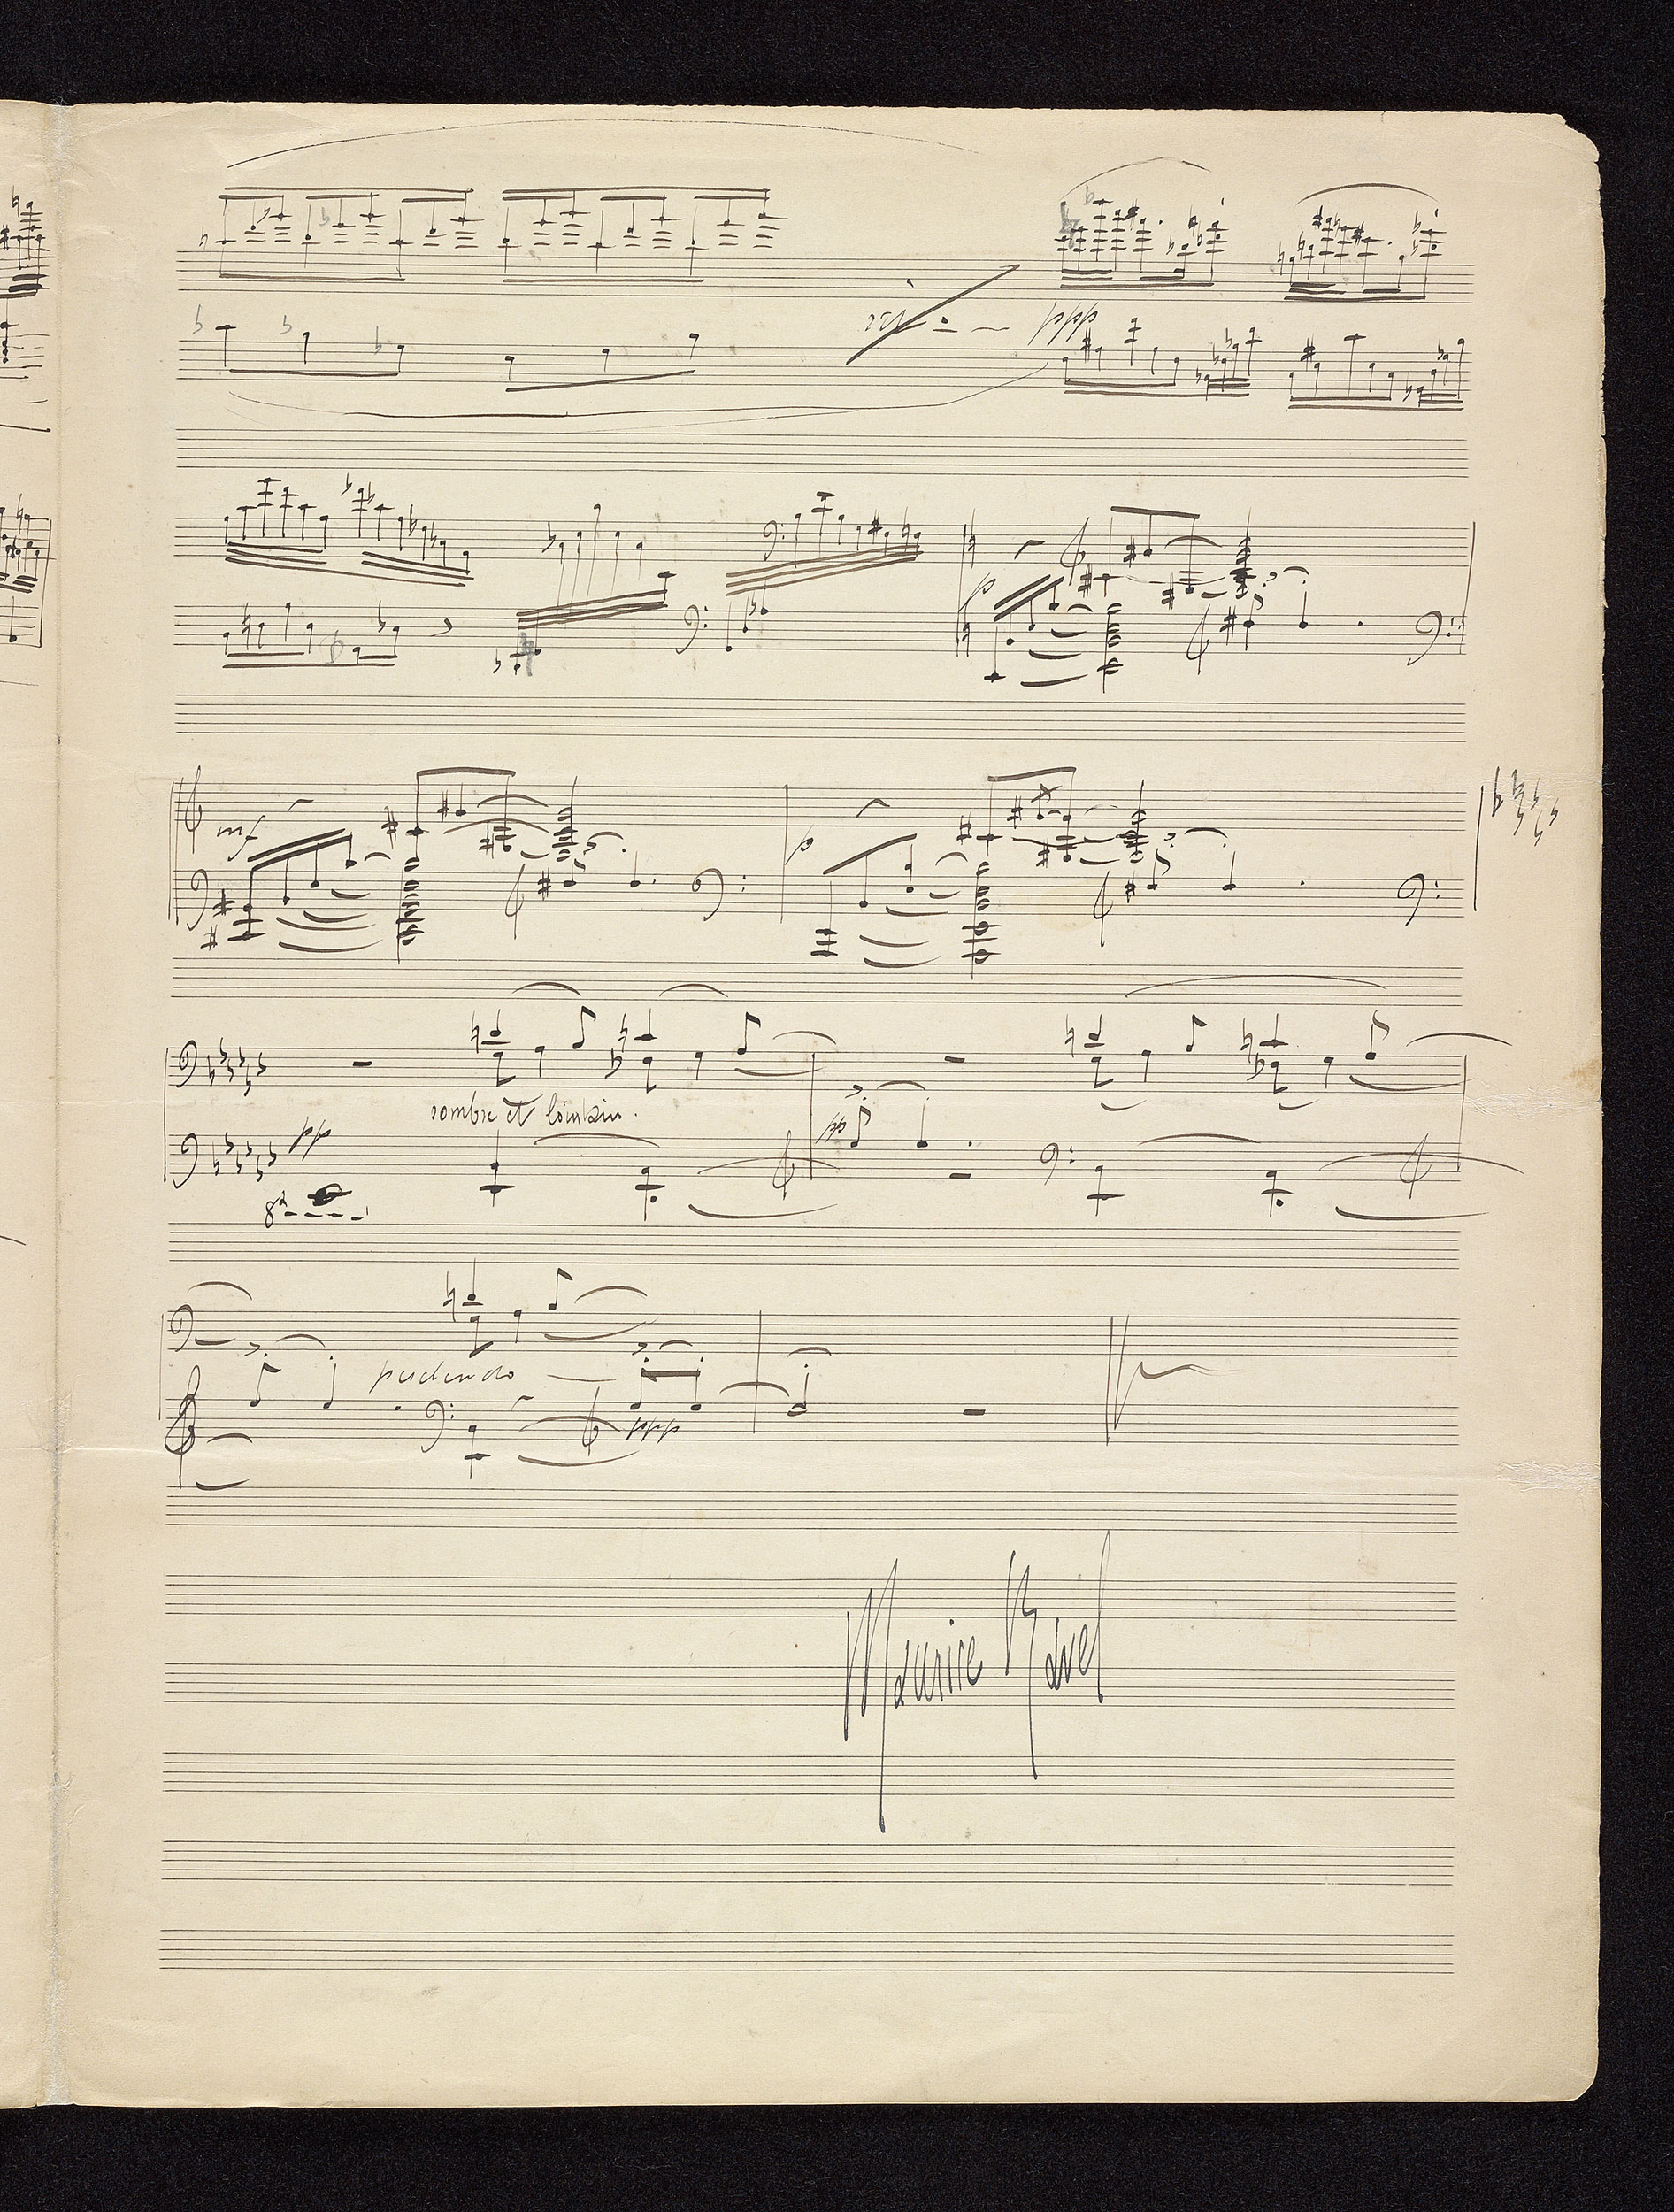 ppp
p
mf
p
sombre et lointain.
pp
pp
8a
perdendo
ppp
Maurice Ravel